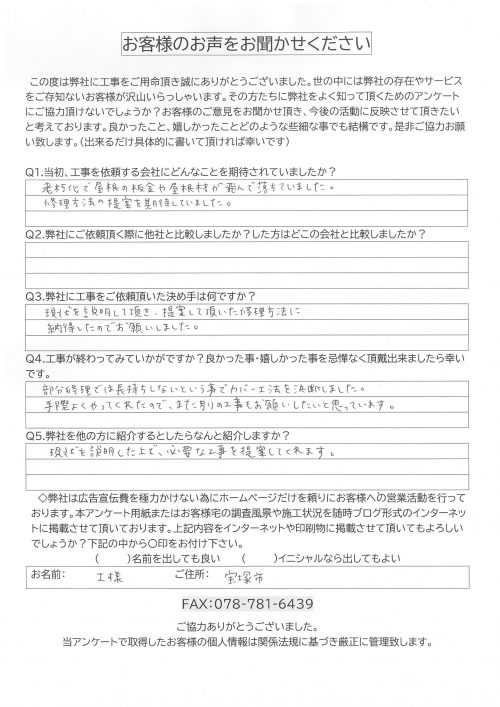 お客様のお声をお聞かせください
この度は弊社に工事をご用命頂き誠にありがとうございました。世の中には弊社の存在やサービス
をご存知ないお客様が沢山いらっしゃいます。その方たちに弊社をよく知って頂くためのアンケート
にご協力頂けないでしょうか?お客様のご意見をお聞かせ頂き、今後の活動に反映させて頂きたい
と考えております。良かったこと、嬉しかったことどのような些細な事でも結構です。是非ご協力お願
い致します。(出来るだけ具体的に書いて頂ければ幸いです)
Q1.当初、工事を依頼する会社にどんなことを期待されていましたか?
老朽化で屋根の板金や屋根材が飛んで落ちていました。
修理方法の提案を期待していました。
Q2.弊社にご依頼頂く際に他社と比較しましたか?した方はどこの会社と比較しましたか?
Q3.弊社に工事をご依頼頂いた決め手は何ですか?
現状を説明して頂き、提案して頂いた修理方法に
納得したのでお願いしました。
Q4.工事が終わってみていかがですか?良かった事・嬉しかった事を忌憚なく頂戴出来ましたら幸い
です。
部分修理では長持ちしないという事でカバー工法を決断しました。
手際よくやってくれたので、また別の工事もお願いしたいと思っています。
Q5.弊社を他の方に紹介するとしたらなんと紹介しますか?
現状を説明した上で、必要な工事を提案してくれます。
◇弊社は広告宣伝費を極力かけない為にホームページだけを頼りにお客様への営業活動を行って
おります。本アンケート用紙またはお客様宅の調査風景や施工状況を随時ブログ形式のインターネッ
トに掲載させて頂いております。上記内容をインターネットや印刷物に掲載させて頂いてもよろしい
でしょうか?下記の中から〇印をお付け下さい。
( )名前を出しても良い ( )イニシャルなら出してもよい
お名前: 工様 ご住所: 宝塚市
FAX:078-781-6439
ご協力ありがとうございました。
当アンケートで取得したお客様の個人情報は関係法規に基づき厳正に管理致します。